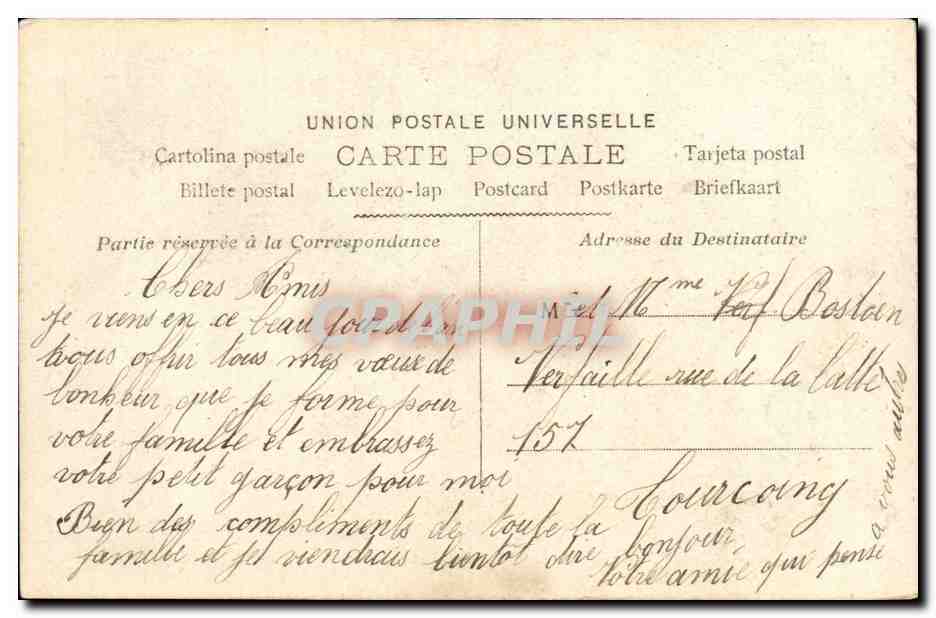 UNION POSTALE UNIVERSELLE
Cartolina postale CARTE POSTALE Tarjeta postal
Billete postal Levelezo-lap Postcard Postkarte Briefkaart
Partie réservée à la Correspondance
Chers Amis
je viens en ce beau jour de l'an
vous offrir tous mes vœux de
bonheur que je forme pour
votre famille et embrassez
votre petit garçon pour moi
Bien des compliments de toute la
famille et je viendrais bientot dire bonjour
votre amie qui pense
a vous autre
Adresse du Destinataire
M et Mme Bostoen
Verfaille rue de la Latte
157
Tourcoing
CPAPHIL